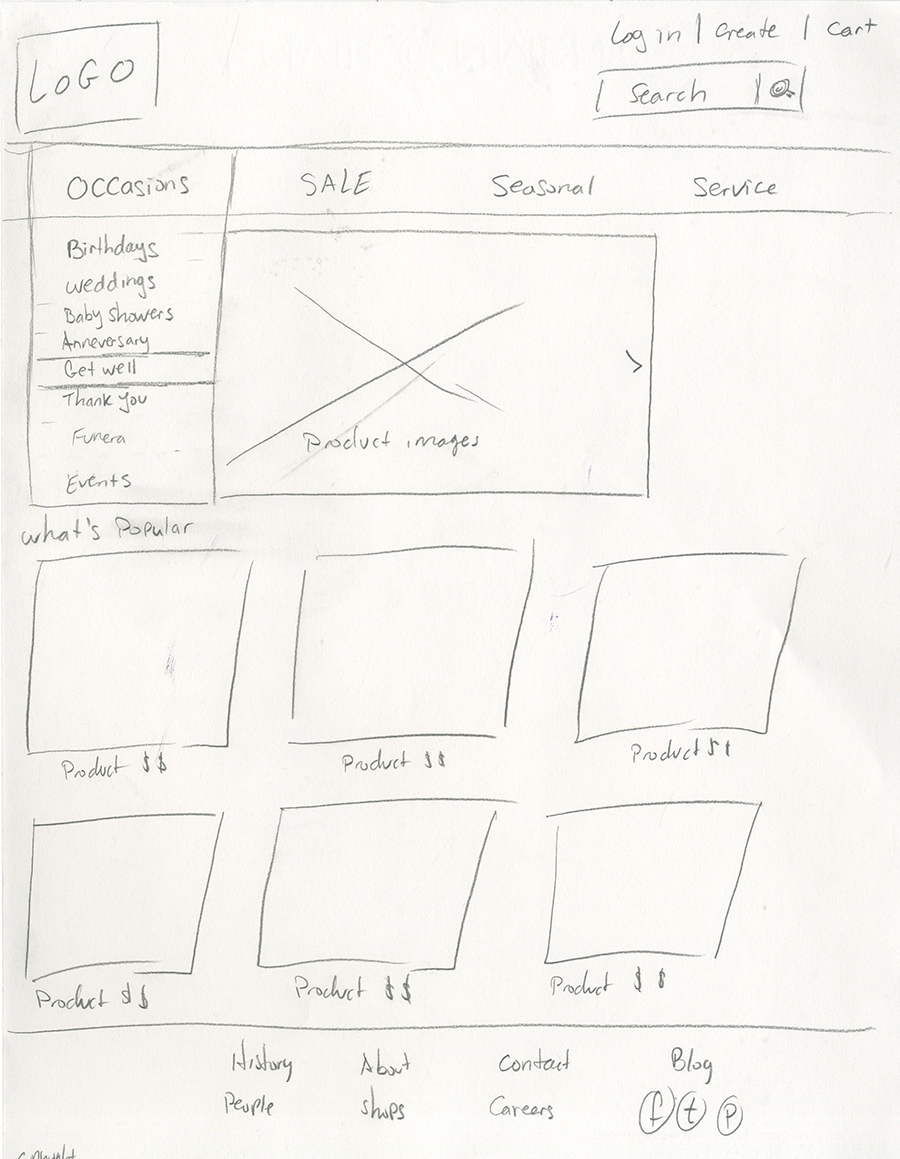 LOGO
Log in | Create | Cart
Search
Occasions SALE Seasonal Service
Birthdays
weddings
Baby showers
Anneversary
Get well
Thank you
Funera
Events
>
Product images
what's Popular
Product $$ Product $$ Product $$
Product $$ Product $$ Product $$
History About Contact Blog
People shops Careers f t p